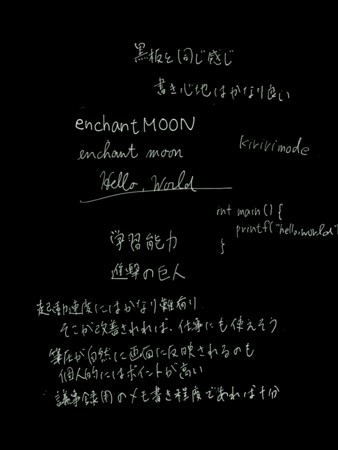 黒板と同じ感じ
書き心地はかなり良い
enchantMOON
enchant moon
kiririmode
Hello, World
int main() {
printf("hello, world"
}
学習能力
進撃の巨人
起動速度にはかなり難有り
そこが改善されれば、仕事にも使えそう
筆圧が自然に画面に反映されるのも
個人的にはポイントが高い
議事録用のメモ書き程度であれば十分